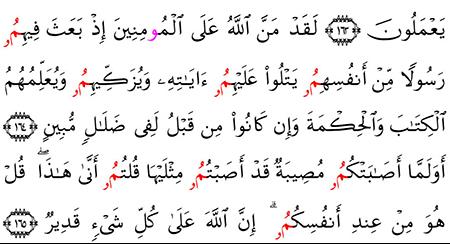 يَعْمَلُونَ ١٦٣ لَقَدْ مَنَّ ٱللَّهُ عَلَى ٱلْمُومِنِينَ إِذْ بَعَثَ فِيهِمُۥ
رَسُولًا مِّنْ أَنفُسِهِمُۥ يَتْلُوا۟ عَلَيْهِمُۥ ءَايَـٰتِهِۦ وَيُزَكِّيهِمُۥ وَيُعَلِّمُهُمُ
ٱلْكِتَـٰبَ وَٱلْحِكْمَةَ وَإِن كَانُوا۟ مِن قَبْلُ لَفِى ضَلَـٰلٍ مُّبِينٍ ١٦٤
أَوَلَمَّا أَصَـٰبَتْكُمُۥ مُصِيبَةٌ قَدْ أَصَبْتُمُۥ مِثْلَيْهَا قُلْتُمُۥ أَنَّىٰ هَـٰذَا ۖ قُلْ
هُوَ مِنْ عِندِ أَنفُسِكُمُۥ ۗ إِنَّ ٱللَّهَ عَلَىٰ كُلِّ شَىْءٍ قَدِيرٌ ١٦٥